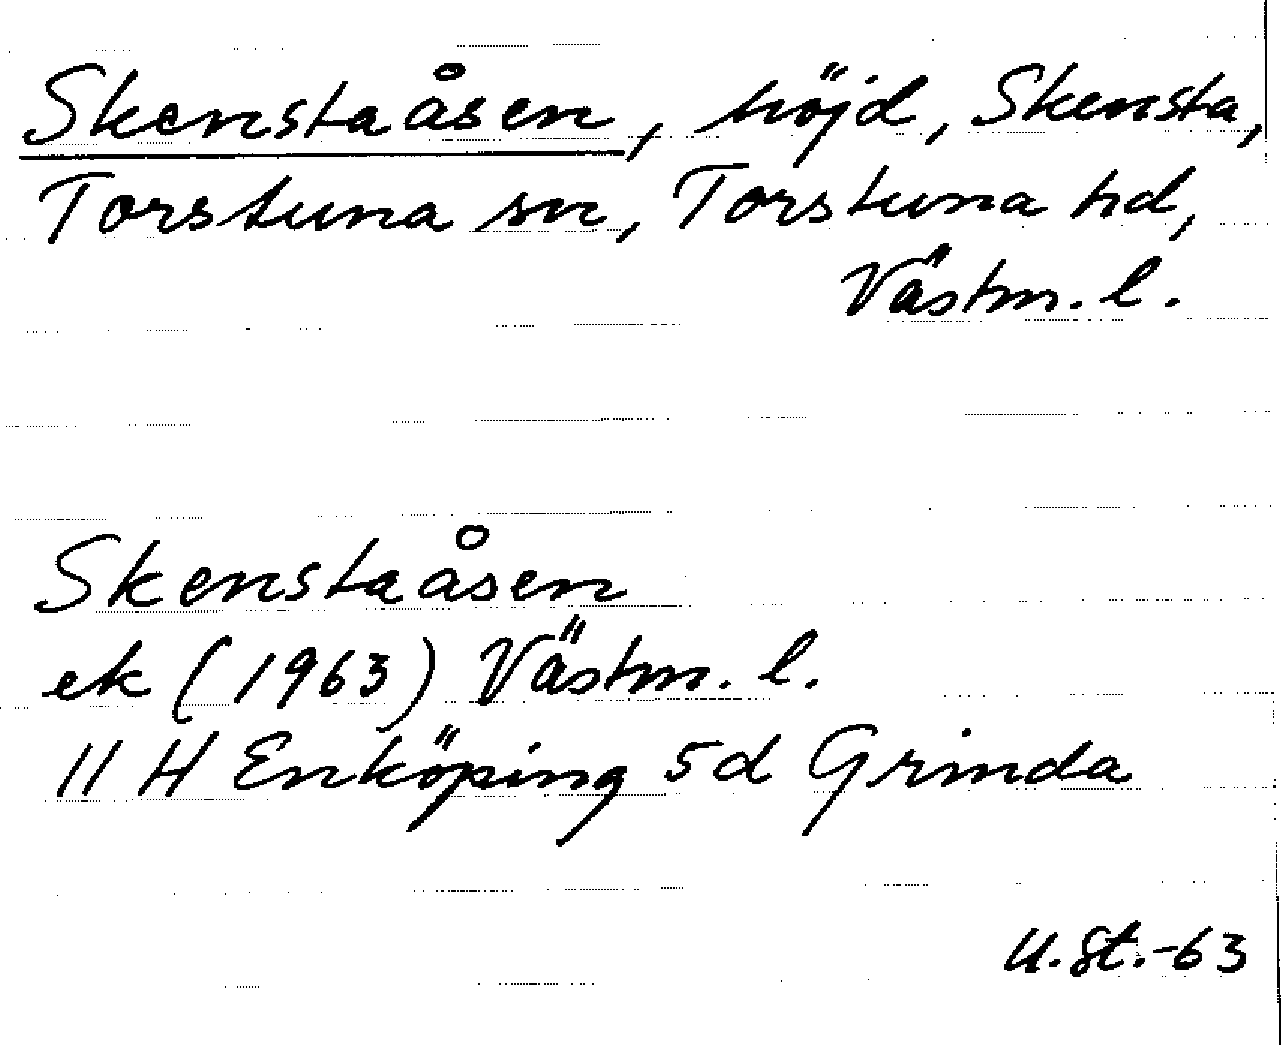 Skenstaåsen, höjd, Skensta,
Torstuna sn, Torstuna hd,
Västm. l.
Skenstaåsen
ek (1963) Västm. l.
11 H Enköping 5d Grinda
U.St.-63